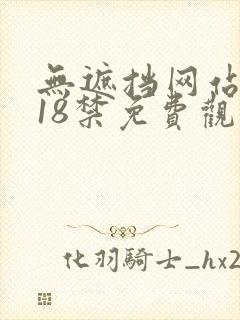 無遮挡网站
18禁免費觀
化羽騎士_hx2